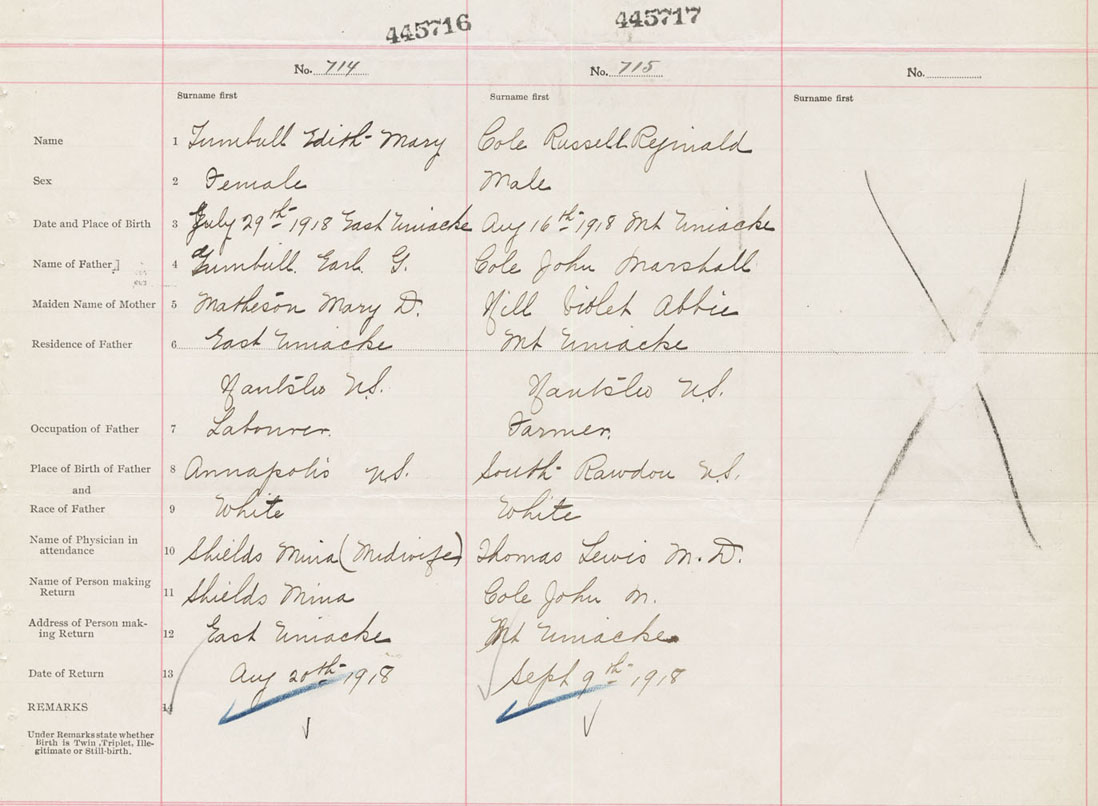 445716 445717
No. 714 No. 715 No.
Surname first Surname first Surname first
Name 1 Turnbull Edith Mary Cole Russell Reginald
Sex 2 Female Male
Date and Place of Birth 3 July 29th 1918 East Uniacke Aug 16th 1918 Mt Uniacke
Name of Father 4 Turnbull Earl G. Cole John Marshall
Maiden Name of Mother 5 Matheson Mary D. Hill Violet Abbie
Residence of Father 6 East Uniacke Mt Uniacke
Hants Co N.S. Hants Co N.S.
Occupation of Father 7 Labourer. Farmer.
Place of Birth of Father 8 Annapolis N.S. South Rawdon N.S.
and
Race of Father 9 White White
Name of Physician in
attendance 10 Shields Mina (Midwife) Thomas Lewis M.D.
Name of Person making
Return 11 Shields Mina Cole John M.
Address of Person mak-
ing Return 12 East Uniacke Mt Uniacke
Date of Return 13 Aug 20th 1918 Sept 9th 1918
REMARKS 14
Under Remarks state whether
Birth is Twin, Triplet, Ille-
gitimate or Still-birth.